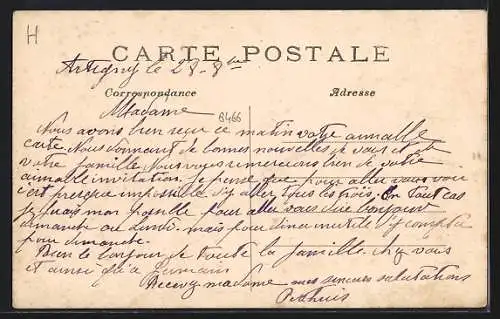 H
CARTE POSTALE
Artigny le 28-8bre
Correspondance Adresse
Madame
8466
Nous avons bien reçu ce matin votre aimable
carte. Nous donnant de bonnes nouvelles de vous et de
votre famille. Nous vous remercions bien de votre
aimable invitation. Je pense que pour aller vous voir
c'est presque impossible d'y aller tous les trois. En tout cas
je ferais mon possible pour aller vous dire bonjour
dimanche ou Lundi. mais pour diner inutile d'y compter
pour dimanche.
Bien le bonjour de toute la famille chez vous
et ainsi qu'a Germain
Recevez madame mes sincères salutations